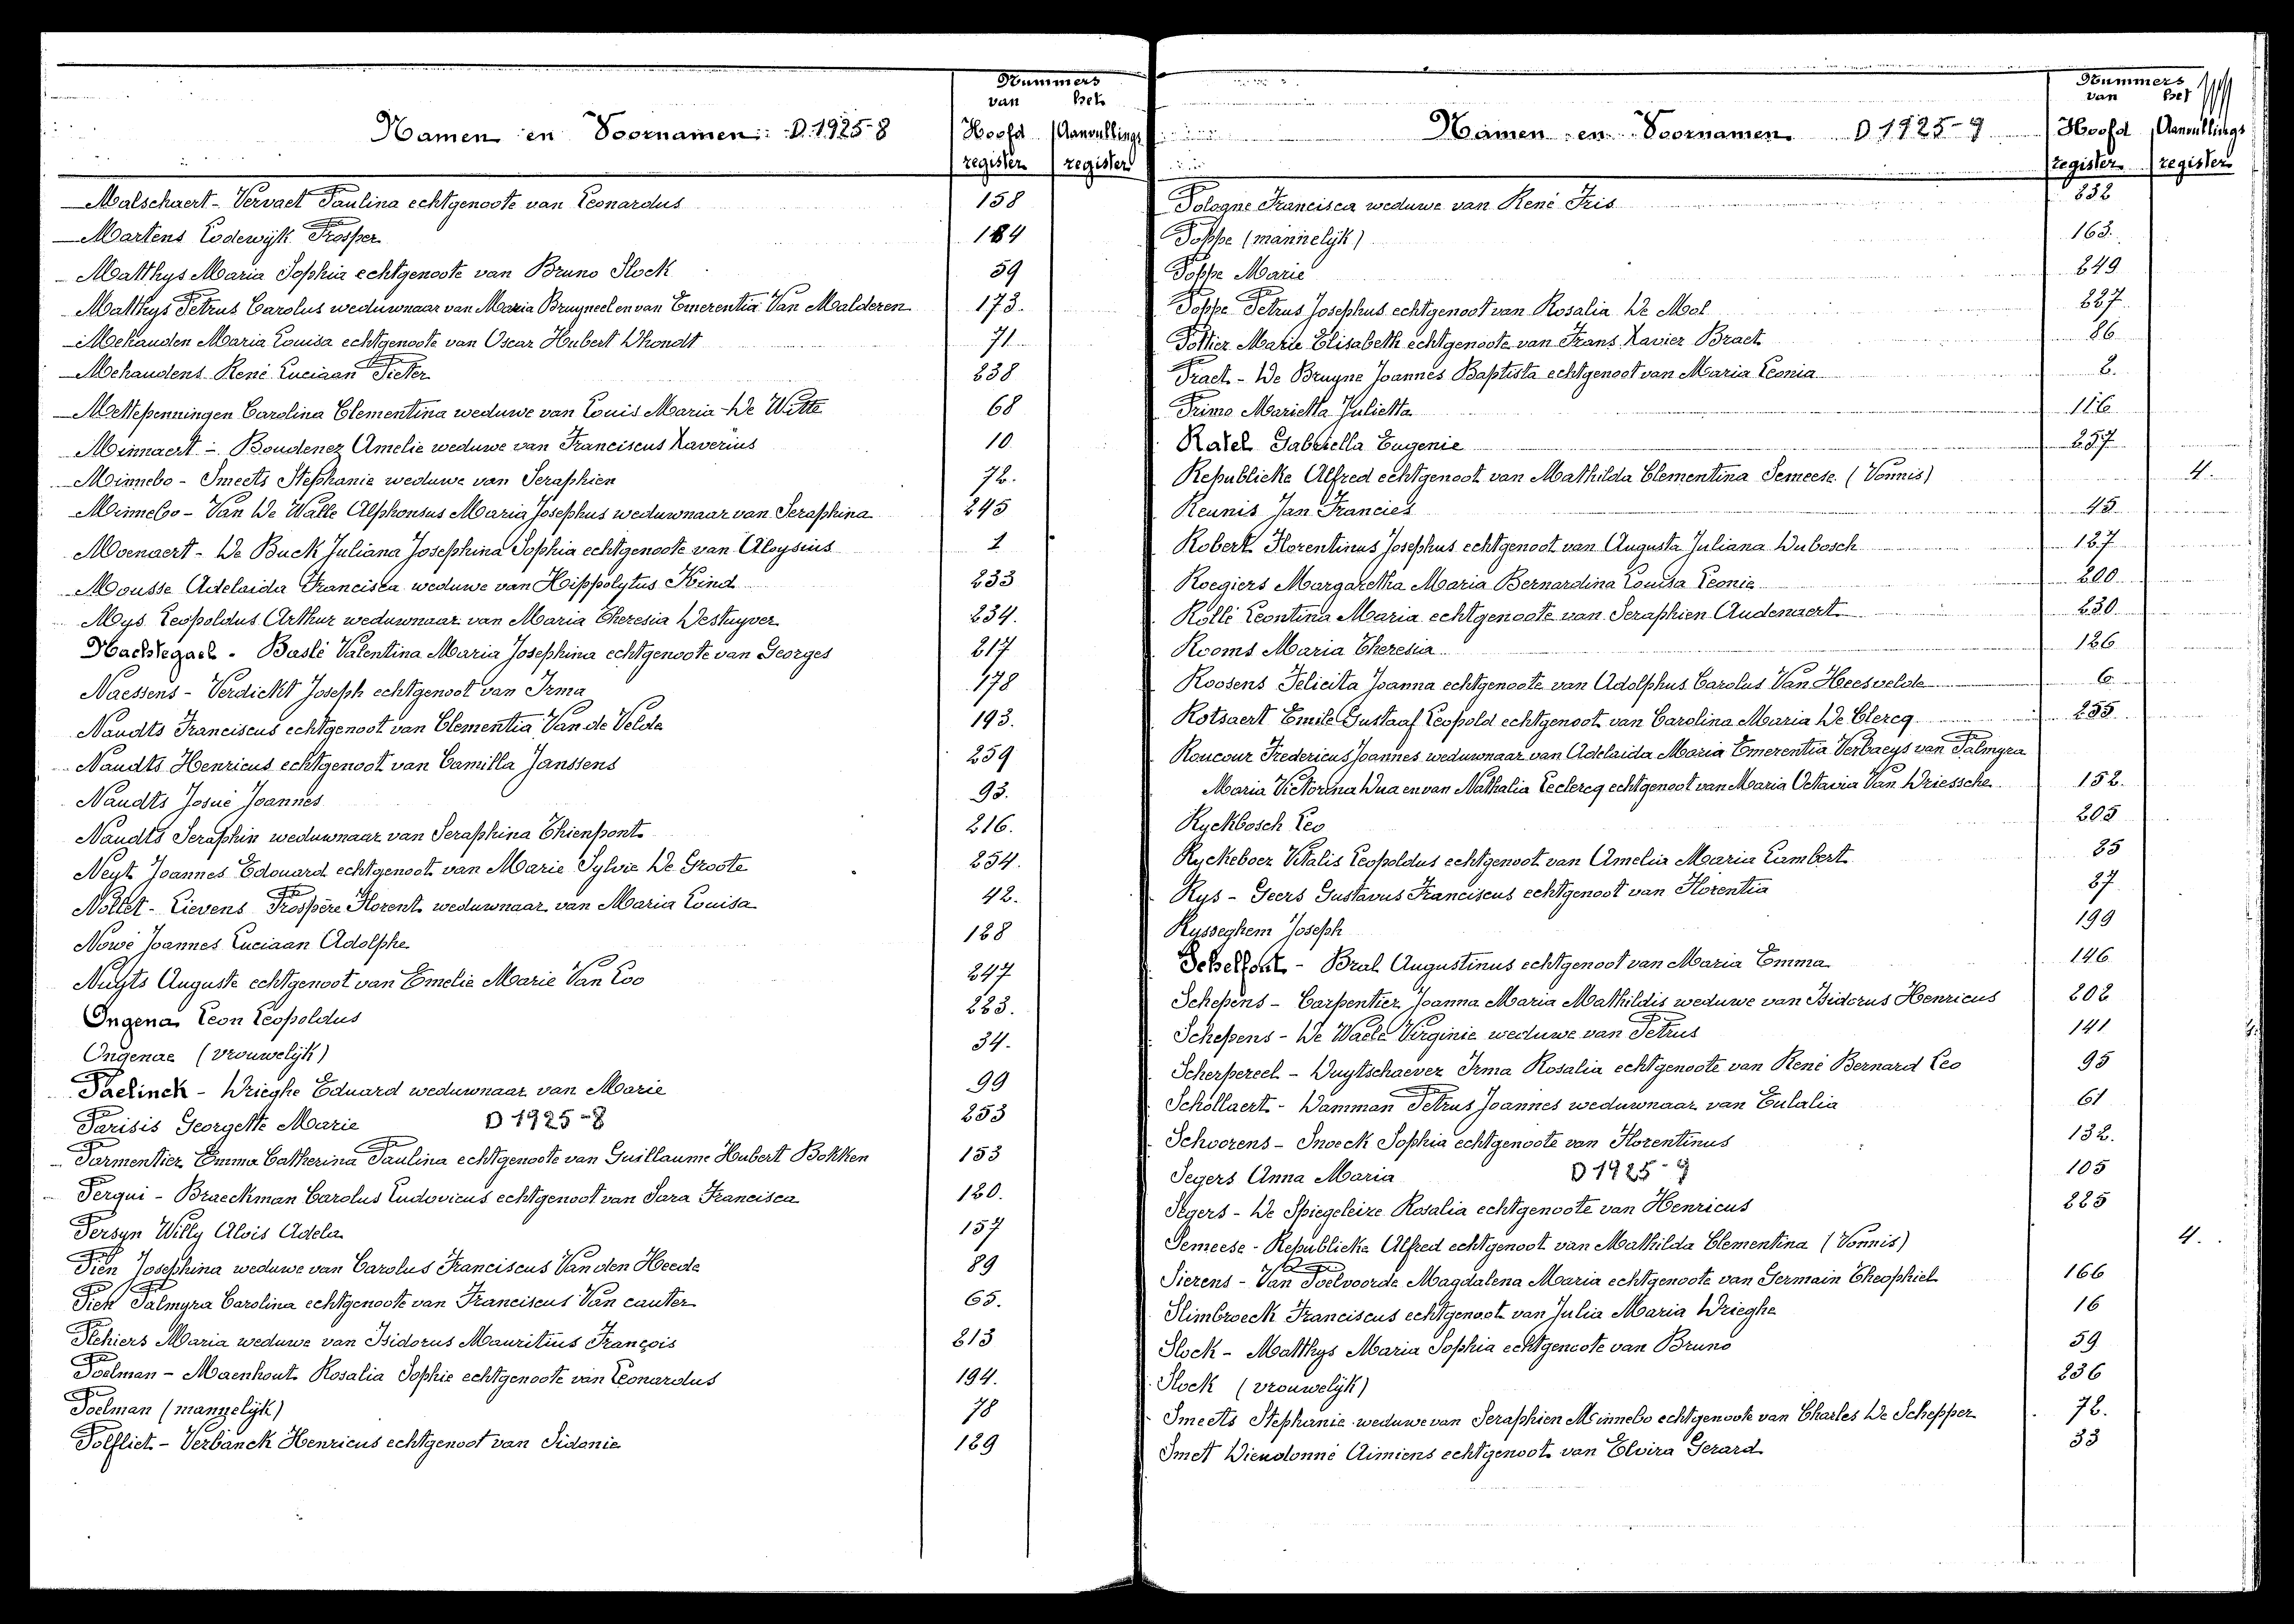 Nummers
van het
Namen en Voornamen D 1925-8 Hoofd Aanvullings
register register
Malschaert - Vervaet Paulina echtgenoote van Leonardus 158
Martens Lodewijk Prosper 184
Matthys Maria Sophia echtgenoote van Bruno Slock 59
Matthys Petrus Carolus weduwnaar van Maria Bruyneel en van Emerentia Van Malderen 173.
Mehauden Maria Louisa echtgenoote van Oscar Hubert Dhondt 71
Mehaudens René Luciaan Pieter 238
Mettepenningen Carolina Clementina weduwe van Louis Maria De Witte 68
Minnaert - Boudenez Amelie weduwe van Franciscus Xaverius 10
Minnebo - Smeets Stephanie weduwe van Seraphien 72.
Minnebo - Van De Walle Alphonsus Maria Josephus weduwnaar van Seraphina 245
Moenaert - De Buck Juliana Josephina Sophia echtgenoote van Aloysius 1
Mousse Adelaida Francisca weduwe van Hippolytus Kind 233
Mys Leopoldus Arthur weduwnaar van Maria Theresia Destuyver 234.
Nachtegael - Baslé Valentina Maria Josephina echtgenoote van Georges 217
Naessens - Verdickt Joseph echtgenoot van Irma 178
Naudts Franciscus echtgenoot van Clementia Van de Velde 193.
Naudts Henricus echtgenoot van Camilla Janssens 259
Naudts Josué Joannes 93.
Naudts Seraphin weduwnaar van Seraphina Thienpont 216.
Neyt Joannes Edouard echtgenoot van Marie Sylvie De Groote 254.
Nollet - Lievens Prospère Florent weduwnaar van Maria Louisa 42.
Nowé Joannes Luciaan Adolphe 128
Nuyts Auguste echtgenoot van Emelie Marie Van Loo 247
Ongena Leon Leopoldus 223.
Ongenae (vrouwelijk) 34.
Paelinck - Drieghe Eduard weduwnaar van Marie 99
Parisis Georgette Marie D 1925-8 253
Parmentier Emma Catherina Paulina echtgenoote van Guillaume Hubert Bokken 153
Perqui - Braeckman Carolus Ludovicus echtgenoot van Sara Francisca 120.
Persyn Willy Aloïs Adela 157
Pien Josephina weduwe van Carolus Franciscus Van den Heede 89
Pien Palmyra Carolina echtgenoote van Franciscus Van cauter 65.
Plehiers Maria weduwe van Isidorus Mauritius François 213
Poelman - Maenhout Rosalia Sophie echtgenoote van Leonardus 194.
Poelman (mannelijk) 78
Polfliet - Verbanck Henricus echtgenoot van Sidonie 129
Nummers
van het
Namen en Voornamen D 1925-9 Hoofd Aanvullings
register register
Pologne Francisca weduwe van René Fris 232
Poppe (mannelijk) 163.
Poppe Marie 249
Poppe Petrus Josephus echtgenoot van Rosalia De Mol 227
Pottier Marie Elisabeth echtgenoote van Frans Xavier Braet 86
Praet - De Bruyne Joannes Baptista echtgenoot van Maria Leonia 2.
Primo Marietta Julietta 116
Ratel Gabriella Eugenie 257
Republieke Alfred echtgenoot van Mathilda Clementina Semeese (Vonnis) 4.
Reunis Jan Francies 45
Robert Florentinus Josephus echtgenoot van Augusta Juliana Dubosch 127
Roegiers Margaretha Maria Bernardina Louisa Leonie 200
Rollé Leontina Maria echtgenoote van Seraphien Audenaert 230
Rooms Maria Theresia 126
Roosens Felicita Joanna echtgenoote van Adolphus Carolus Van Heesvelde 6
Rotsaert Emile Gustaaf Leopold echtgenoot van Carolina Maria De Clercq 255
Roucour Fredericus Joannes weduwnaar van Adelaida Maria Emerentia Verbaeys van Palmyra
Maria Victorina Dua en van Nathalia Leclercq echtgenoot van Maria Octavia Van Driessche 152.
Ryckbosch Leo 205
Ryckeboer Vitalis Leopoldus echtgenoot van Amelia Maria Lambert 85
Rys - Geers Gustavus Franciscus echtgenoot van Florentia 87
Rysseghem Joseph 199
Schelfout - Bral Augustinus echtgenoot van Maria Emma 146
Schepens - Carpentier Joanna Maria Mathildis weduwe van Isidorus Henricus 202
Schepens - De Waele Virginie weduwe van Petrus 141
Scherpereel - Duytschaever Irma Rosalia echtgenoote van René Bernard Leo 95
Schollaert - Damman Petrus Joannes weduwnaar van Eulalia 61
Schoorens - Snoeck Sophia echtgenoote van Florentinus 132.
Segers Anna Maria D 1925-9 105
Segers - De Spiegeleire Rosalia echtgenoote van Henricus 225
Semeese - Republieke Alfred echtgenoot van Mathilda Clementina (Vonnis) 4.
Sierens - Van Poelvoorde Magdalena Maria echtgenoote van Germain Theophiel 166
Slimbroeck Franciscus echtgenoot van Julia Maria Drieghe 16
Slock - Matthys Maria Sophia echtgenoote van Bruno 59
Slock (vrouwelijk) 236
Smeets Stephanie weduwe van Seraphien Minnebo echtgenoote van Charles De Schepper 72.
Smet Dieudonné Aimiens echtgenoot van Elvira Gerard 33